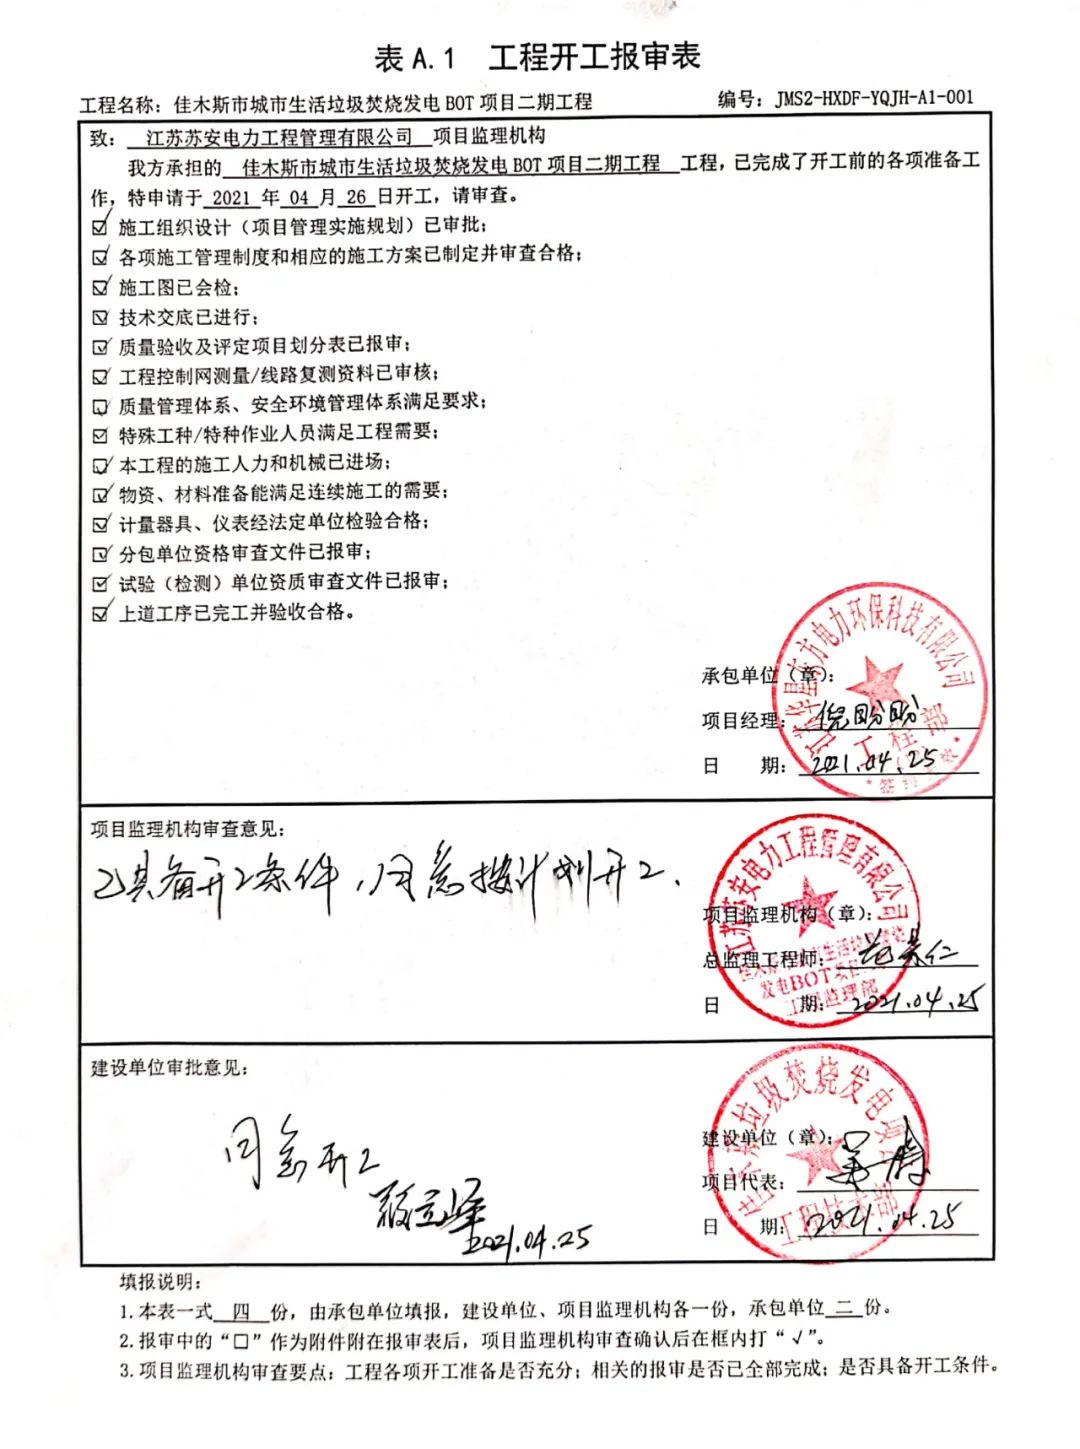 表 A.1 工程开工报审表
工程名称：佳木斯市城市生活垃圾焚烧发电 BOT 项目二期工程 编号：JMS2-HXDF-YQJH-A1-001
致： 江苏苏安电力工程管理有限公司 项目监理机构
我方承担的 佳木斯市城市生活垃圾焚烧发电 BOT 项目二期工程 工程，已完成了开工前的各项准备工
作，特申请于 2021 年 04 月 26 日开工，请审查。
☑ 施工组织设计（项目管理实施规划）已审批；
☑ 各项施工管理制度和相应的施工方案已制定并审查合格；
☑ 施工图已会检；
☑ 技术交底已进行；
☑ 质量验收及评定项目划分表已报审；
☑ 工程控制网测量/线路复测资料已审核；
☑ 质量管理体系、安全环境管理体系满足要求；
☑ 特殊工种/特种作业人员满足工程需要；
☑ 本工程的施工人力和机械已进场；
☑ 物资、材料准备能满足连续施工的需要；
☑ 计量器具、仪表经法定单位检验合格；
☑ 分包单位资格审查文件已报审；
☑ 试验（检测）单位资质审查文件已报审；
☑ 上道工序已完工并验收合格。
江苏华星东方电力环保科技有限公司
工程部
承包单位（章）：
项目经理：倪盼盼
日 期：2021.04.25
项目监理机构审查意见：
已具备开工条件，同意按计划开工.
江苏苏安电力工程管理有限公司
发电BOT项目
工程监理部
项目监理机构（章）：
总监理工程师：
日 期：2021.04.25
建设单位审批意见：
同意开工
2021.04.25
垃圾焚烧发电项
工程技术部
建设单位（章）：
项目代表：
日 期：2021.04.25
填报说明：
1.本表一式 四 份，由承包单位填报，建设单位、项目监理机构各一份，承包单位 二 份。
2.报审中的“□”作为附件附在报审表后，项目监理机构审查确认后在框内打“√”。
3.项目监理机构审查要点：工程各项开工准备是否充分；相关的报审是否已全部完成；是否具备开工条件。